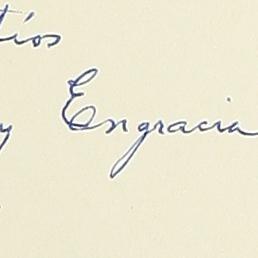 tíos
y Engracia